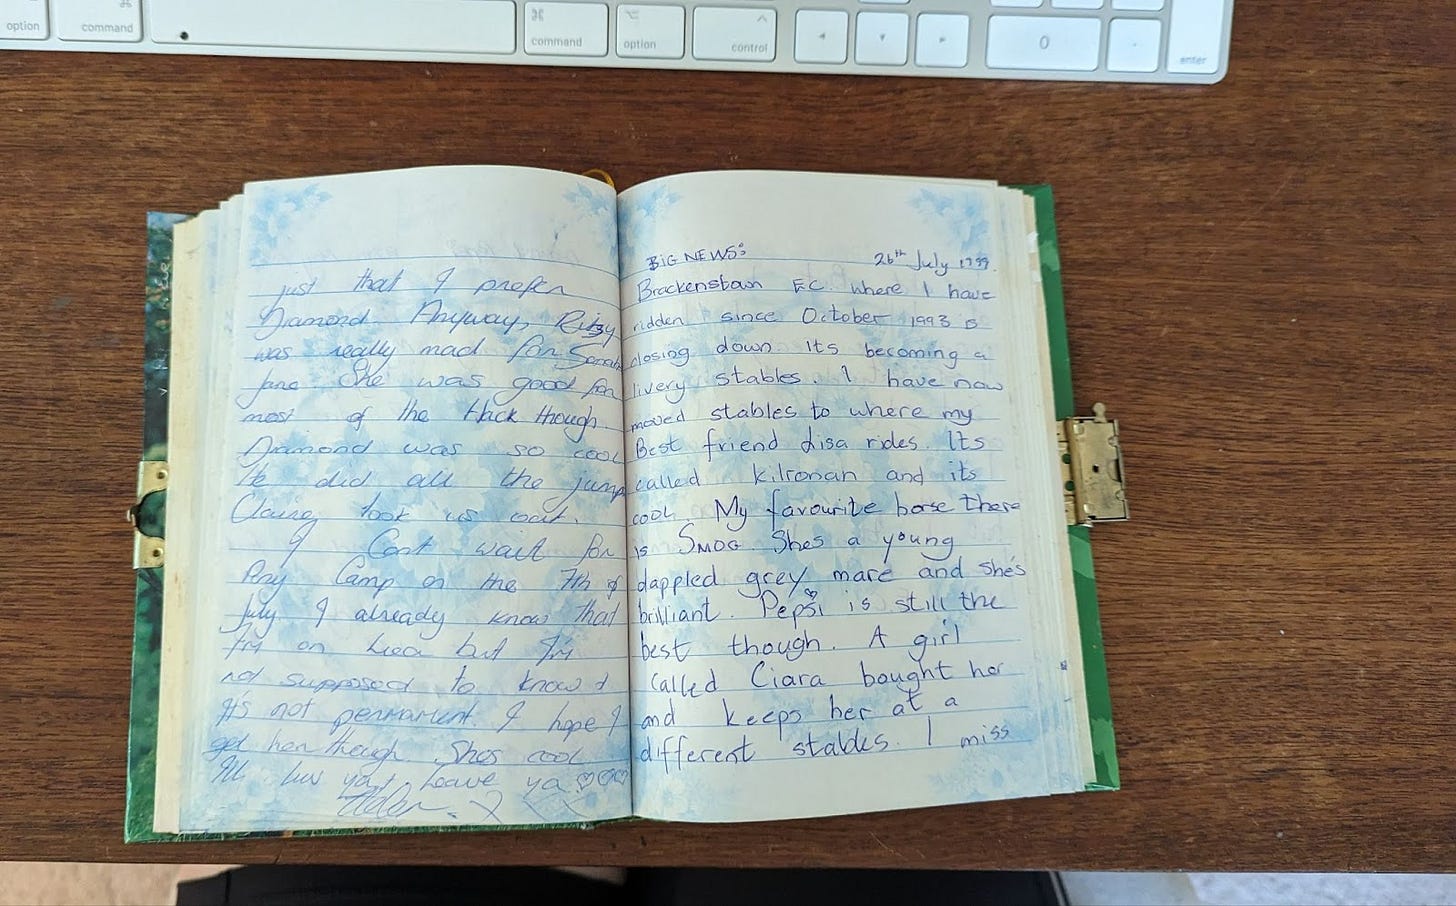 option
⌘
command
⌘
command
⌥
option
^
control
0
.
enter
just that I prefer
Diamond. Anyway, Ritzy
was really mad for Sarah
Jane. She was good for
most of the Hack though.
Diamond was so cool
He did all the jump
Claire took us out.
I Cant wait for
Pony Camp on the 7th of
July I already know that
I'm on but I'm
not supposed to know &
It's not permanent. I hope I
get her though. Shes cool
leave ya ♡♡♡
BIG NEWS:
26th July 1999.
Brackenstown EC. where I have
ridden since October 1993 is
closing down. Its becoming a
livery stables. I have now
moved stables to where my
Best friend Lisa rides. Its
called Kilronan and its
cool. My favourite horse there
is Smog. Shes a young
dappled grey mare and she's
brilliant. Pepsi is still the
best though. A girl
called Ciara bought her
and keeps her at a
different stables. I miss